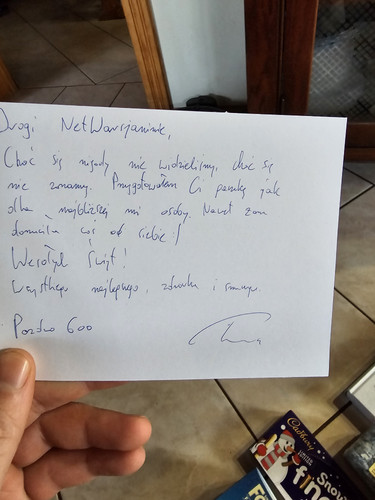 Drogi NetWarszaninie,
Choć się nigdy nie widzieliśmy, choć się
nie znamy. Przygotowałem Ci paczkę jak
dla najbliższej mi osoby. Nawet żona
dorzuciła coś od siebie :)
Wesołych Świąt!
Wszystkiego najlepszego, zdrowia i
Pozdro 600
Cadbury
Snow